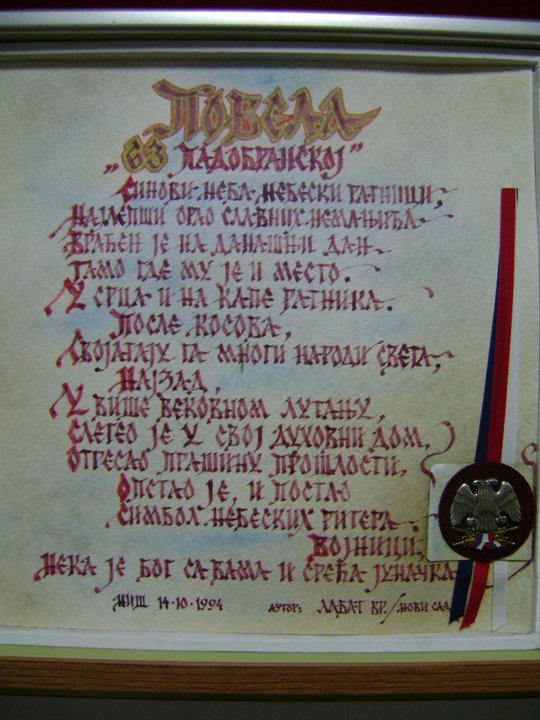 ПОВЕЉА
„63 ПАДОБРАНСКОЈ"
СИНОВИ НЕБА, НЕБЕСКИ РАТНИЦИ,
НАЈЛЕПШИ ОРАО СЛАВНИХ НЕМАЊИЋА
ВРАЋЕН ЈЕ НА ДАНАШЊИ ДАН
ТАМО ГДЕ МУ ЈЕ И МЕСТО.
У СРЦА И НА КАПЕ РАТНИКА.
ПОСЛЕ КОСОВА,
СВОЈАТАЈУ ГА МНОГИ НАРОДИ СВЕТА,
НАЈЗАД,
У ВИШЕ ВЕКОВНОМ ЛУТАЊУ,
СЛЕТЕО ЈЕ У СВОЈ ДУХОВНИ ДОМ,
ОТРЕСАО ПРАШИНУ ПРОШЛОСТИ,
ОПСТАО ЈЕ, И ПОСТАО
СИМБОЛ НЕБЕСКИХ РИТЕРА
ВОЈНИЦИ.
НЕКА ЈЕ БОГ СА ВАМА И СРЕЋА ЈУНАЧКА
НИШ 14·10·1994 АУТОР: ЛАБАТ БР./НОВИ САД